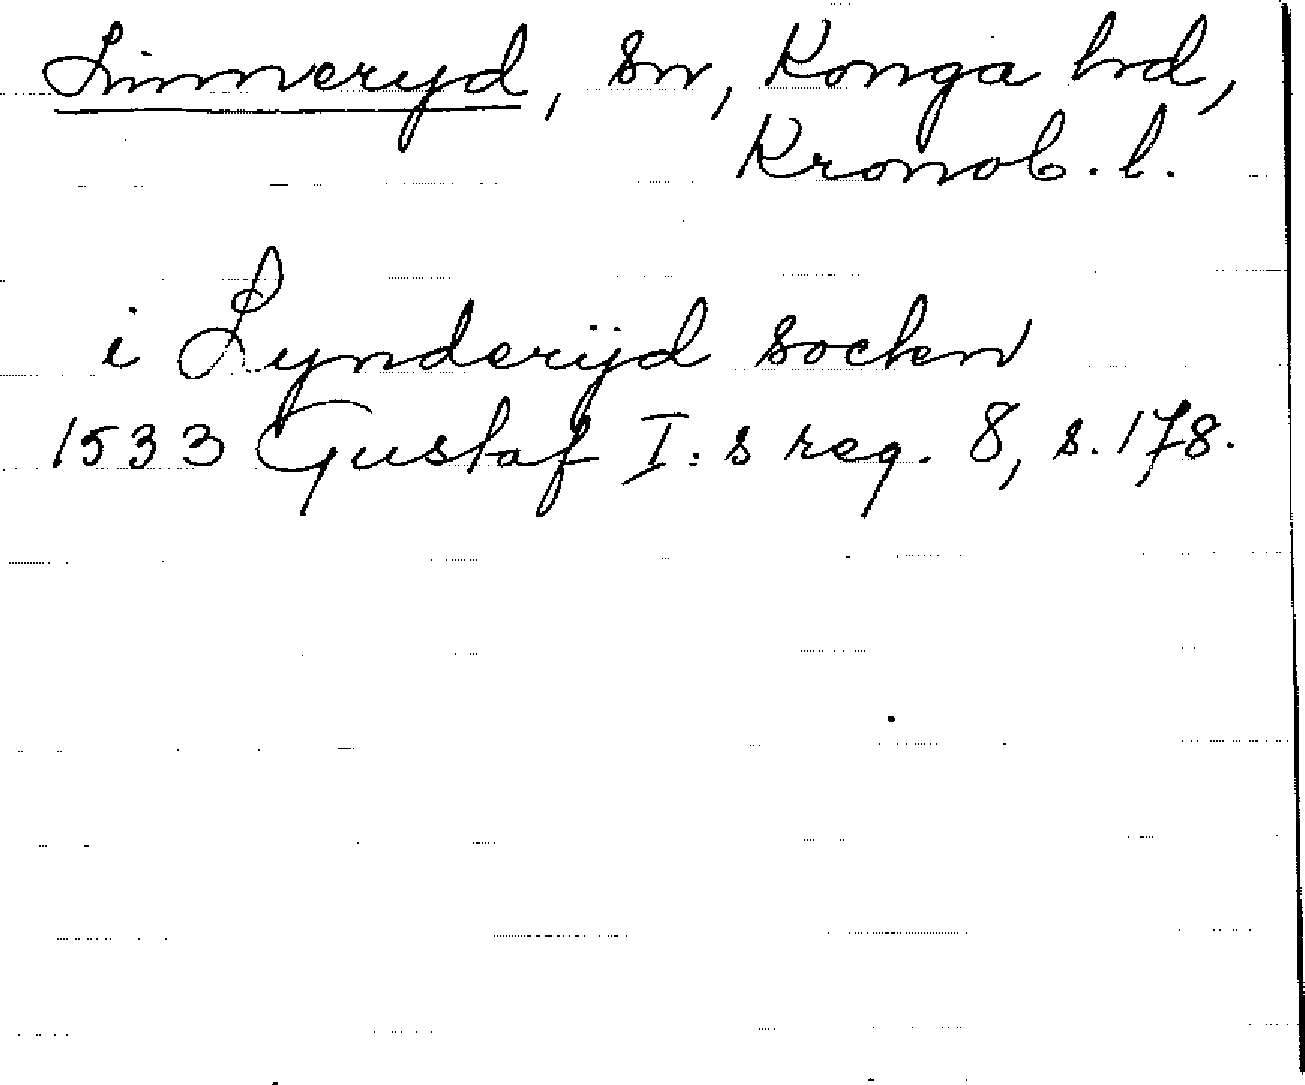 Linneryd, sn, Konga hd,
Kronob. l.
i Lynderÿd sochen
1533 Gustaf I:s reg. 8, s. 178.